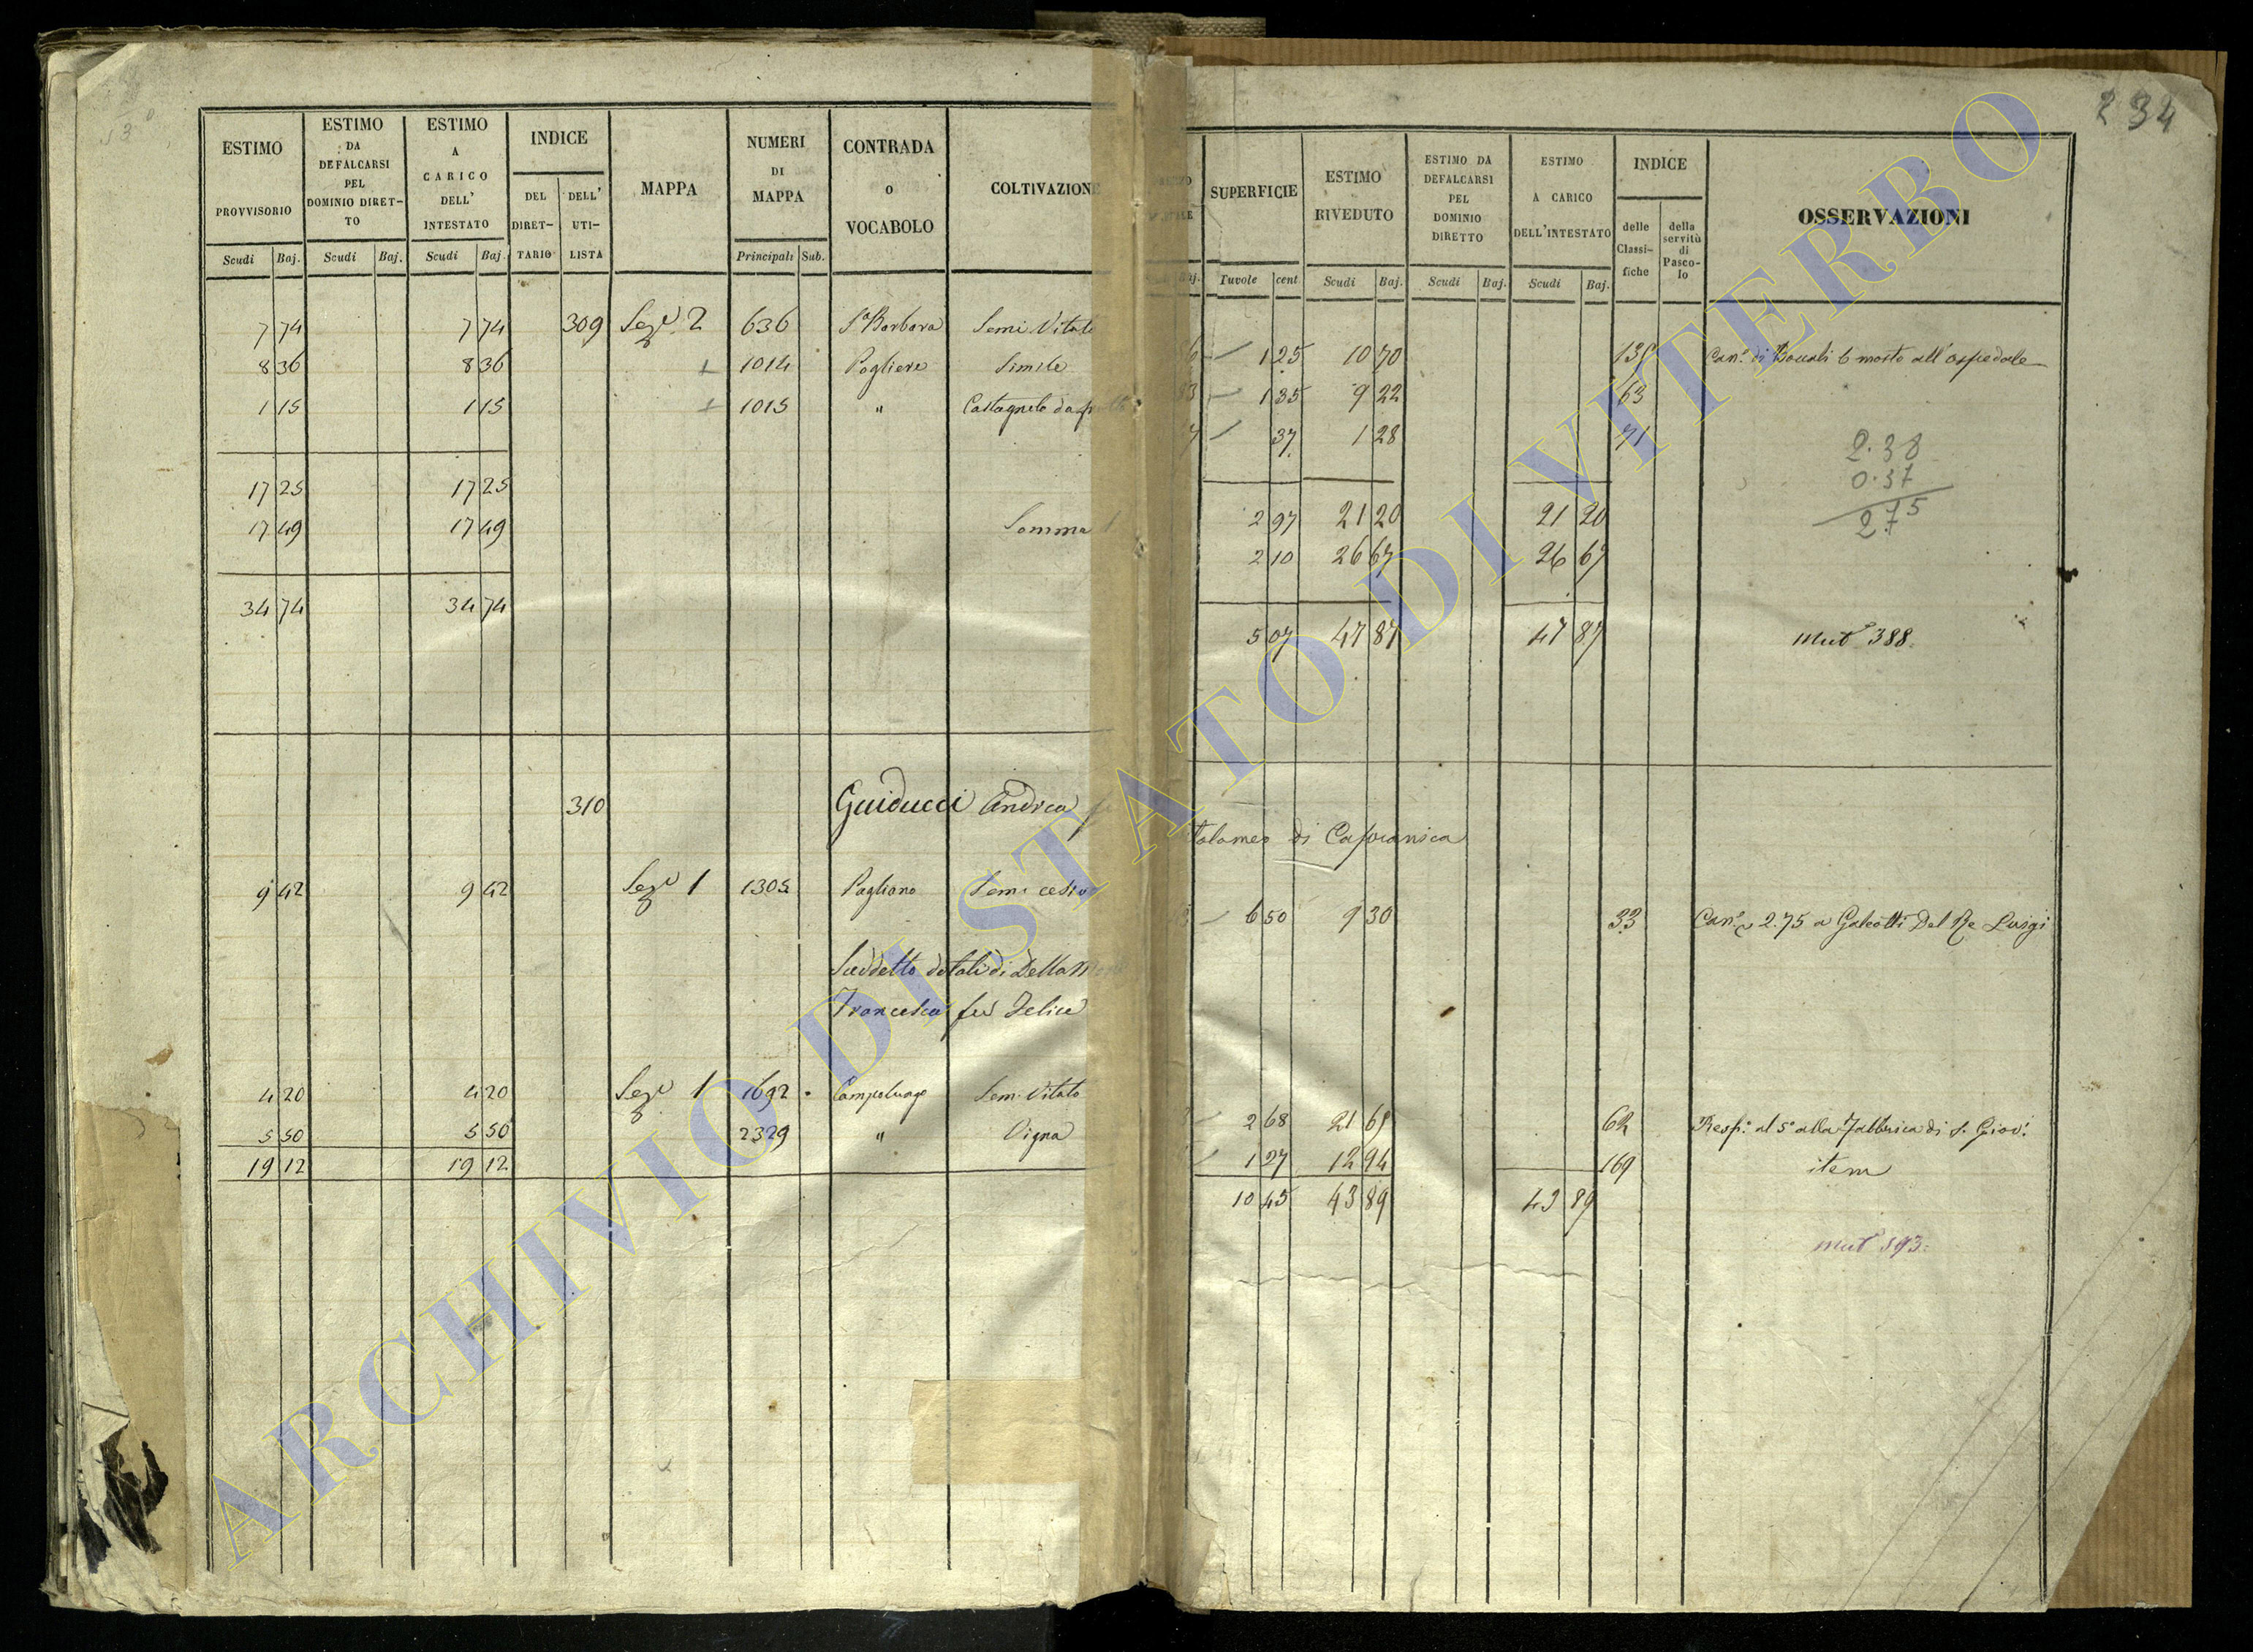 234
ESTIMO PROVVISORIO Scudi Baj.
ESTIMO DA DEFALCARSI PEL DOMINIO DIRET-TO Scudi Baj.
ESTIMO A CARICO DELL' INTESTATO Scudi Baj.
INDICE DEL DIRET-TARIO DELL' UTI-LISTA
MAPPA
NUMERI DI MAPPA Principali Sub.
CONTRADA O VOCABOLO
COLTIVAZIONE
SUPERFICIE Tavole cent
ESTIMO RIVEDUTO Scudi Baj.
ESTIMO DA DEFALCARSI PEL DOMINIO DIRETTO Scudi Baj.
ESTIMO A CARICO DELL'INTESTATO Scudi Baj.
INDICE delle Classi-fiche della servitù di Pasco-lo
OSSERVAZIONI
7 74 7 74 309 Sez.e 2 636 S.a Barbara Semi Vitato
8 36 8 36 1014 Pogliere Simile
1 15 1 15 1015 " Castagneto da
17 25 17 25
17 49 17 49 Somma
34 74 34 74
310 Guiducci Andrea
9 42 9 42 Sez.e 1 1305 Pagliano
Suddetto dotali di Della
Francesca fu Felice
4 20 4 20 Sez.e 1 1692 Sem. Vitato
5 50 5 50 2329 " Vigna
19 12 19 12
1 25 10 70 Can.e di Boccali 6 mosto all'ospedale
1 35 9 22 63
37 1 28 71
2.38
0.37
2.75
2 97 21 20 21 20
2 10 26 67 26 67
5 07 47 87 47 87 Mut.e 388.
talomeo di Capranica
6 50 9 30 33 Can.e 2.75 a Galeotti Del Re Luigi
2 68 21 65 62 Resp.e al 5.o alla Fabbrica di S. Giov.i
1 27 12 94 169 item
10 45 43 89 43 89
Mut.e 393.
ARCHIVIO DI STATO DI VITERBO